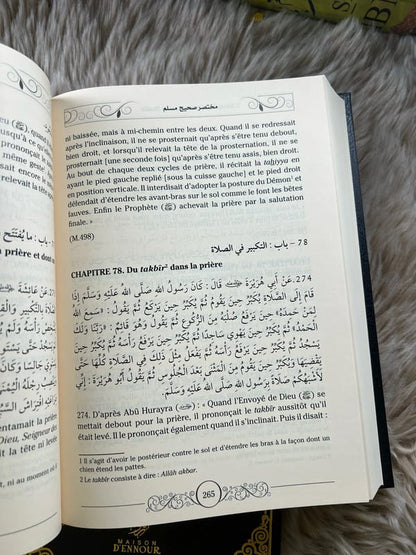 مختصر صحيح مسلم
ni baissée, mais à mi-chemin entre les deux. Quand il se redressait
après l'inclinaison, il ne se prosternait qu'après s'être tenu debout,
bien droit, et lorsqu'il relevait la tête de la prosternation, il ne se
prosternait [une seconde fois] qu'après s'être tenu assis, bien droit.
Au bout de chaque deux cycles de prière, il récitait la taḥiyya en
ayant le pied gauche replié [sous la cuisse gauche] et le pied droit
en position verticale. Il interdisait d'adopter la posture du Démon¹ et
défendait d'étendre les avant-bras sur le sol comme le font les bêtes
fauves. Enfin le Prophète (ﷺ) achevait la prière par la salutation
finale. »
(M.498)
78 – باب : التكبير في الصلاة
CHAPITRE 78. Du takbîr² dans la prière
274. عَنْ أَبِي هُرَيْرَةَ قَالَ : كَانَ رَسُولُ اللهِ صَلَّى اللهُ عَلَيْهِ وَسَلَّمَ إِذَا
قَامَ إِلَى الصَّلَاةِ يُكَبِّرُ حِينَ يَقُومُ ثُمَّ يُكَبِّرُ حِينَ يَرْكَعُ ثُمَّ يَقُولُ : «سَمِعَ اللهُ
لِمَنْ حَمِدَهُ» حِينَ يَرْفَعُ صُلْبَهُ مِنَ الرُّكُوعِ ثُمَّ يَقُولُ وَهُوَ قَائِمٌ : «رَبَّنَا وَلَكَ
الْحَمْدُ» ثُمَّ يُكَبِّرُ حِينَ يَهْوِي سَاجِدًا ثُمَّ يُكَبِّرُ حِينَ يَرْفَعُ رَأْسَهُ ثُمَّ يُكَبِّرُ حِينَ
يَسْجُدُ ثُمَّ يُكَبِّرُ حِينَ يَرْفَعُ رَأْسَهُ ثُمَّ يَفْعَلُ مِثْلَ ذَلِكَ فِي الصَّلَاةِ كُلِّهَا حَتَّى
يَقْضِيَهَا وَيُكَبِّرُ حِينَ يَقُومُ مِنَ الْمَثْنَى بَعْدَ الْجُلُوسِ ثُمَّ يَقُولُ أَبُو هُرَيْرَةَ : إِنِّي
لَأَشْبَهُكُمْ صَلَاةً بِرَسُولِ اللهِ صَلَّى اللهُ عَلَيْهِ وَسَلَّمَ.
274. D'après Abû Hurayra : « Quand l'Envoyé de Dieu (ﷺ) se
mettait debout pour la prière, il prononçait le takbîr aussitôt qu'il
était levé. Il le prononçait également quand il s'inclinait. Puis il disait :
1 Il s'agit d'avoir le postérieur contre le sol et d'étendre les bras à la façon dont un
chien étend les pattes.
2 Le takbîr consiste à dire : Allâh akbar.
265
MAISON
D'ENNOUR